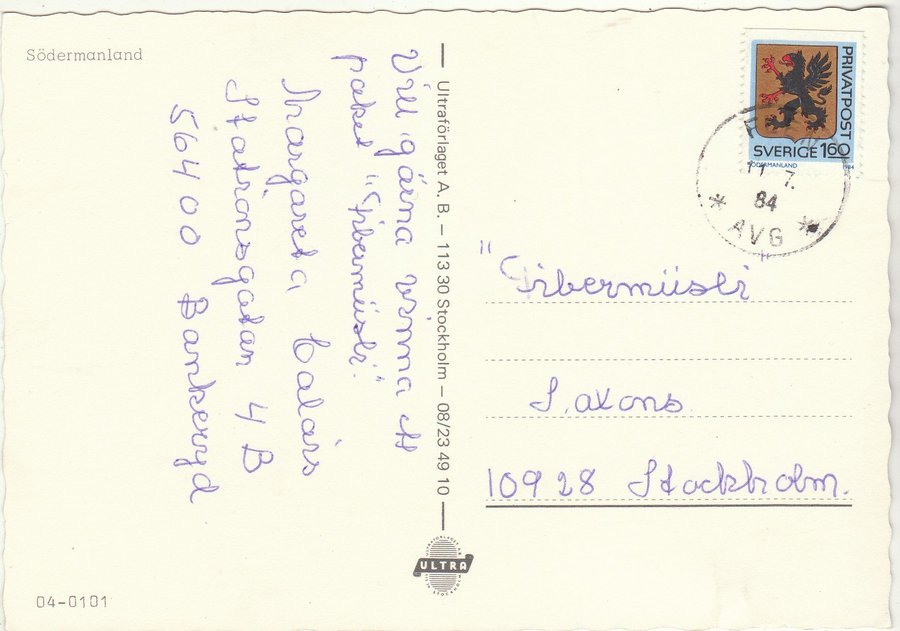 Södermanland
Vill gärna vinna ett
paket "Fibermüsli".
Margareta
Stationsgatan 4 B
56400 Bankeryd
Ultraförlaget A. B. – 113 30 Stockholm – 08/23 49 10
ULTRA
04-0101
PRIVATPOST
SVERIGE 160
SÖDERMANLAND 1984
11 7.
84
* AVG *
"Fibermüsli"
S. Axons
10928 Stockholm.